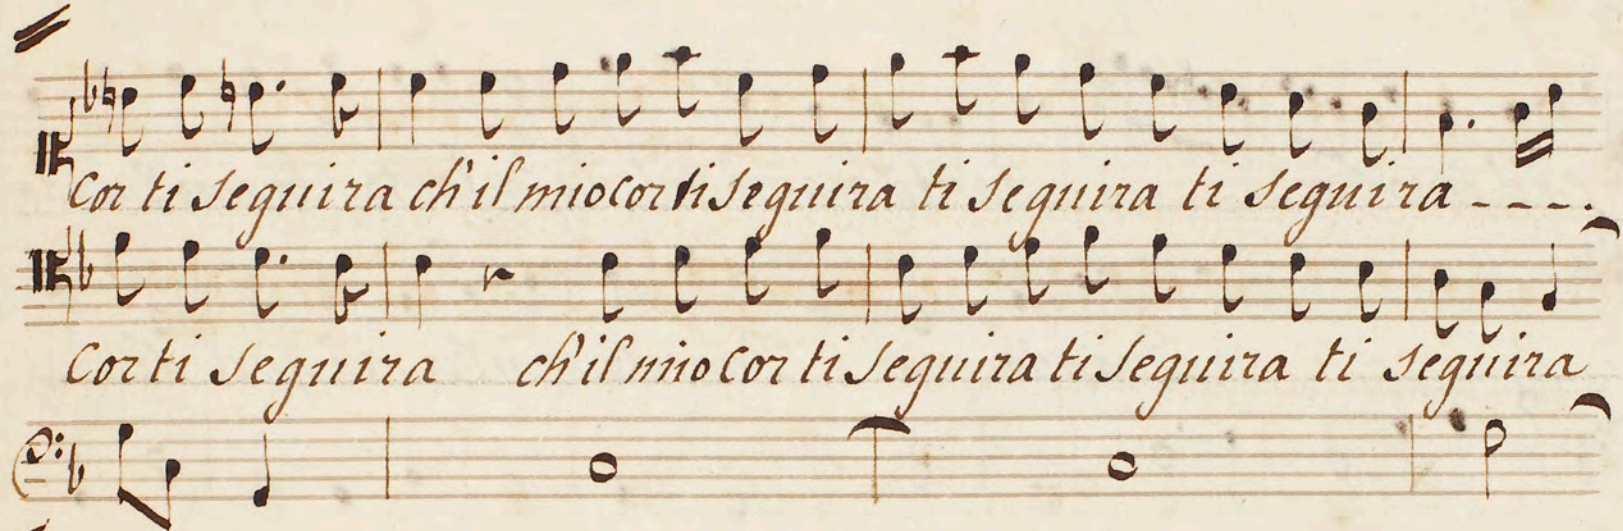 Cor ti seguira ch'il mio cor ti seguira ti seguira ti seguira ----.
Cor ti seguira ch'il mio Cor ti seguira ti seguira ti seguira